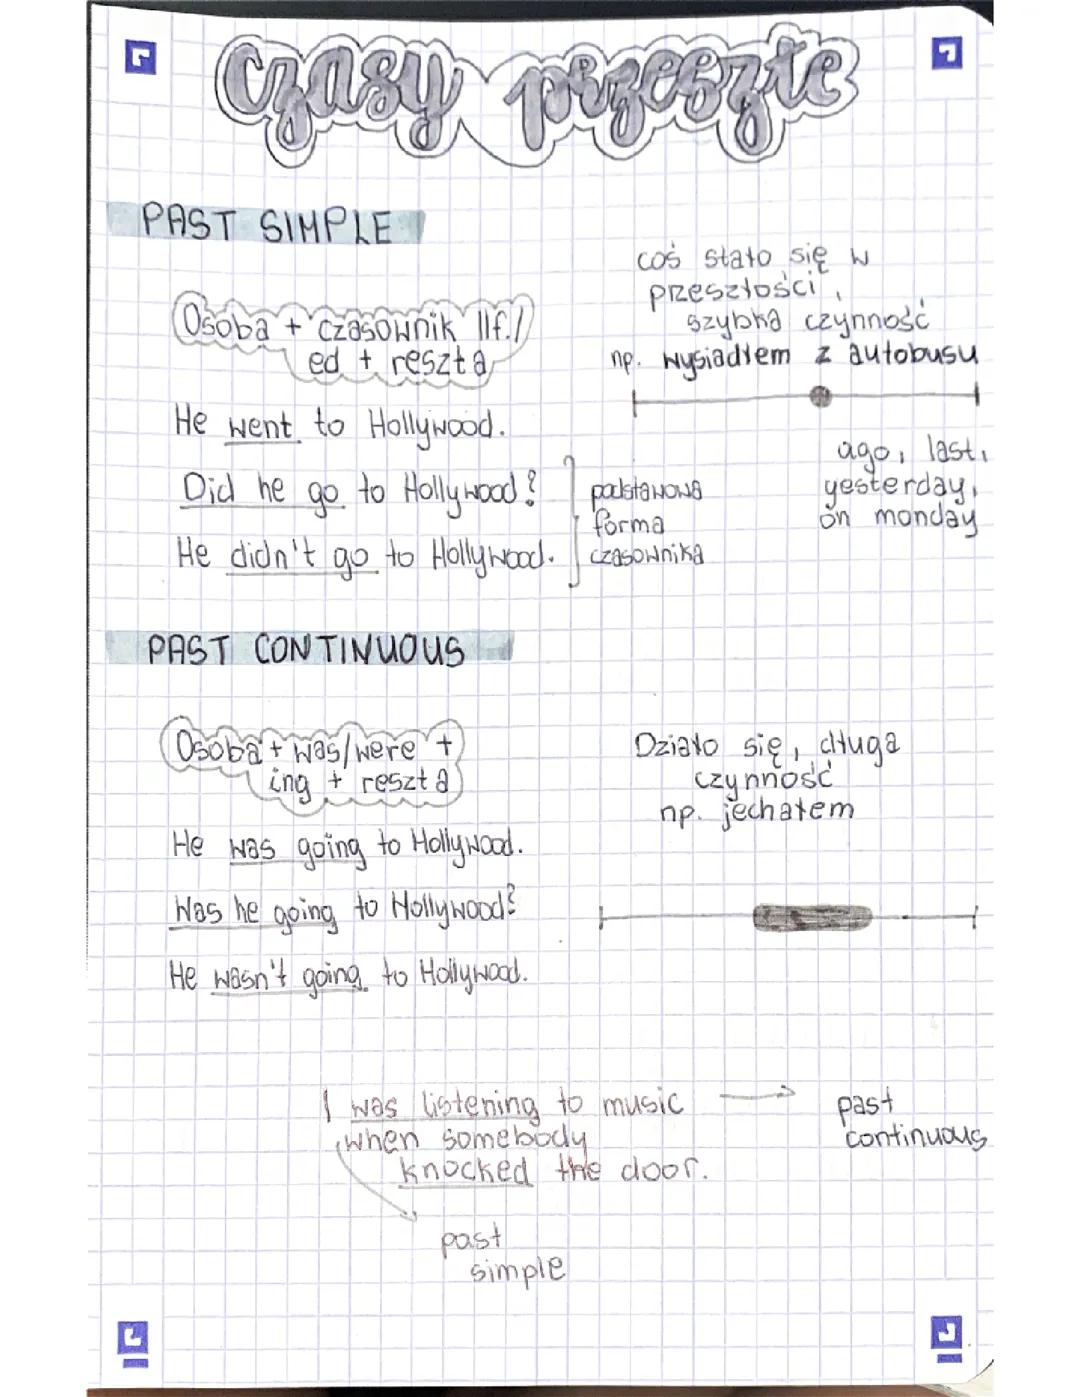 czasy przeszłe
PAST SIMPLE
coś stało się w
przeszłości,
szybka czynność
np. wysiadłem z autobusu
Osoba + czasownik IIf./
ed + reszta
He went to Hollywood.
Did he go to Hollywood?
He didn't go to Hollywood.
podstawowa
forma
czasownika
ago, last,
yesterday,
on monday
PAST CONTINUOUS
Osoba + was/were +
ing + reszta
Działo się, długa
czynność
np. jechałem
He was going to Hollywood.
Was he going to Hollywood?
He wasn't going to Hollywood.
I was listening to music
when somebody
knocked the door.
past
continuous
past
simple